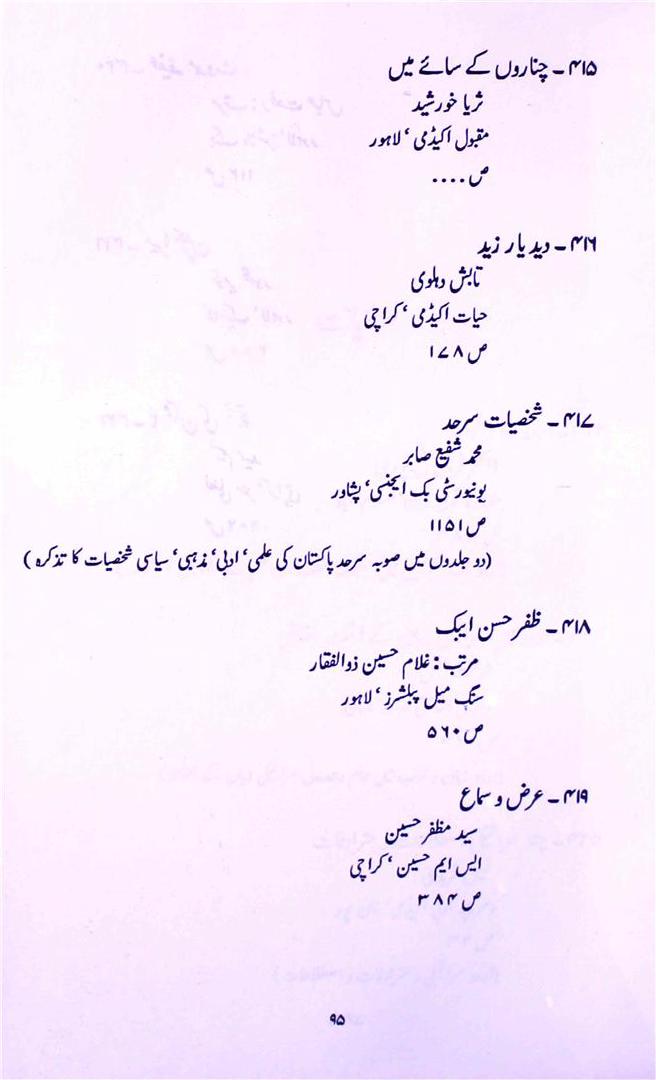 ۴۱۵ ۔ چناروں کے سائے میں
ثریا خورشید
مقبول اکیڈمی ‘ لاہور
ص ....
۴۱۶ ۔ دید یار زید
تابش دہلوی
حیات اکیڈمی ‘ کراچی
ص ۱۷۸
۴۱۷ ۔ شخصیات سرحد
محمد شفیع صابر
یونیورسٹی بک ایجنسی ‘ پشاور
ص ۱۱۵۱
(دو جلدوں میں صوبہ سرحد پاکستان کی علمی ‘ ادبی ‘ مذہبی ‘ سیاسی شخصیات کا تذکرہ )
۴۱۸ ۔ ظفر حسن ایبک
مرتب : غلام حسین ذوالفقار
سنگ میل پبلشرز ‘ لاہور
ص ۵۶۰
۴۱۹ ۔ عرض و سماع
سید مظفر حسین
ایس ایم حسین ‘ کراچی
ص ۳۸۴
۹۵